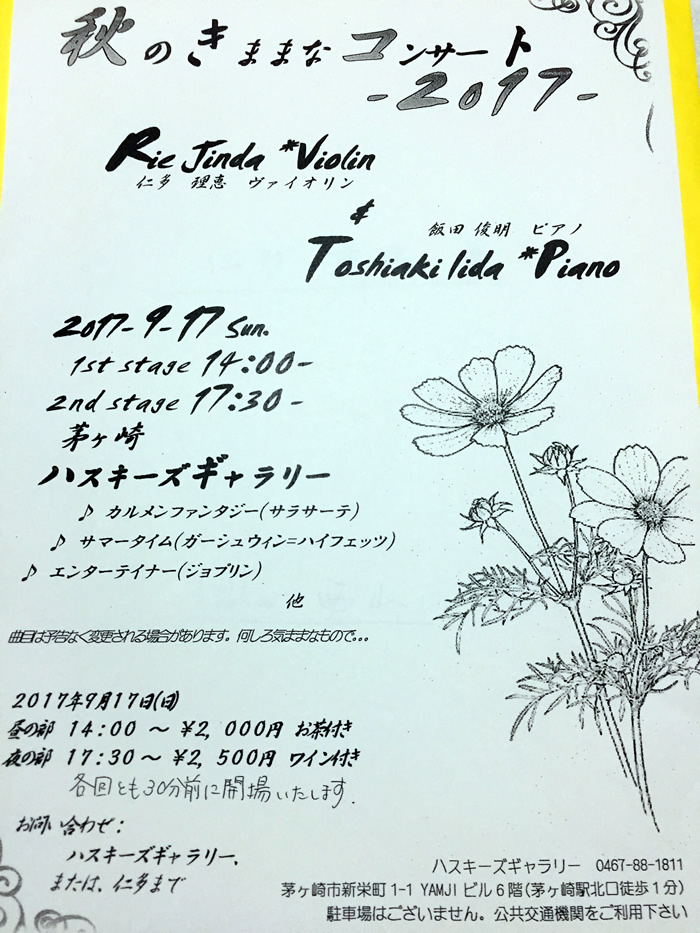 秋のきままなコンサート
-2017-
Rie Jinda *Violin
仁多 理恵 ヴァイオリン
&
飯田 俊明 ピアノ
Toshiaki Iida *Piano
2017-9-17 Sun.
1st stage 14:00-
2nd stage 17:30-
茅ヶ崎
ハスキーズギャラリー
♪ カルメンファンタジー(サラサーテ)
♪ サマータイム(ガーシュウィン=ハイフェッツ)
♪ エンターテイナー(ジョプリン)
他
曲目は予告なく変更される場合があります。何しろ気ままなもので。。。
2017年9月17日(日)
昼の部 14:00 ～ ¥2,000円 お茶付き
夜の部 17:30～ ¥2,500円 ワイン付き
各回とも30分前に開場いたします.
お問い合わせ:
ハスキーズギャラリー、
または、仁多まで
ハスキーズギャラリー 0467-88-1811
茅ヶ崎市新栄町1-1 YAMJIビル6階(茅ヶ崎駅北口徒歩1分)
駐車場はございません。公共交通機関をご利用下さい